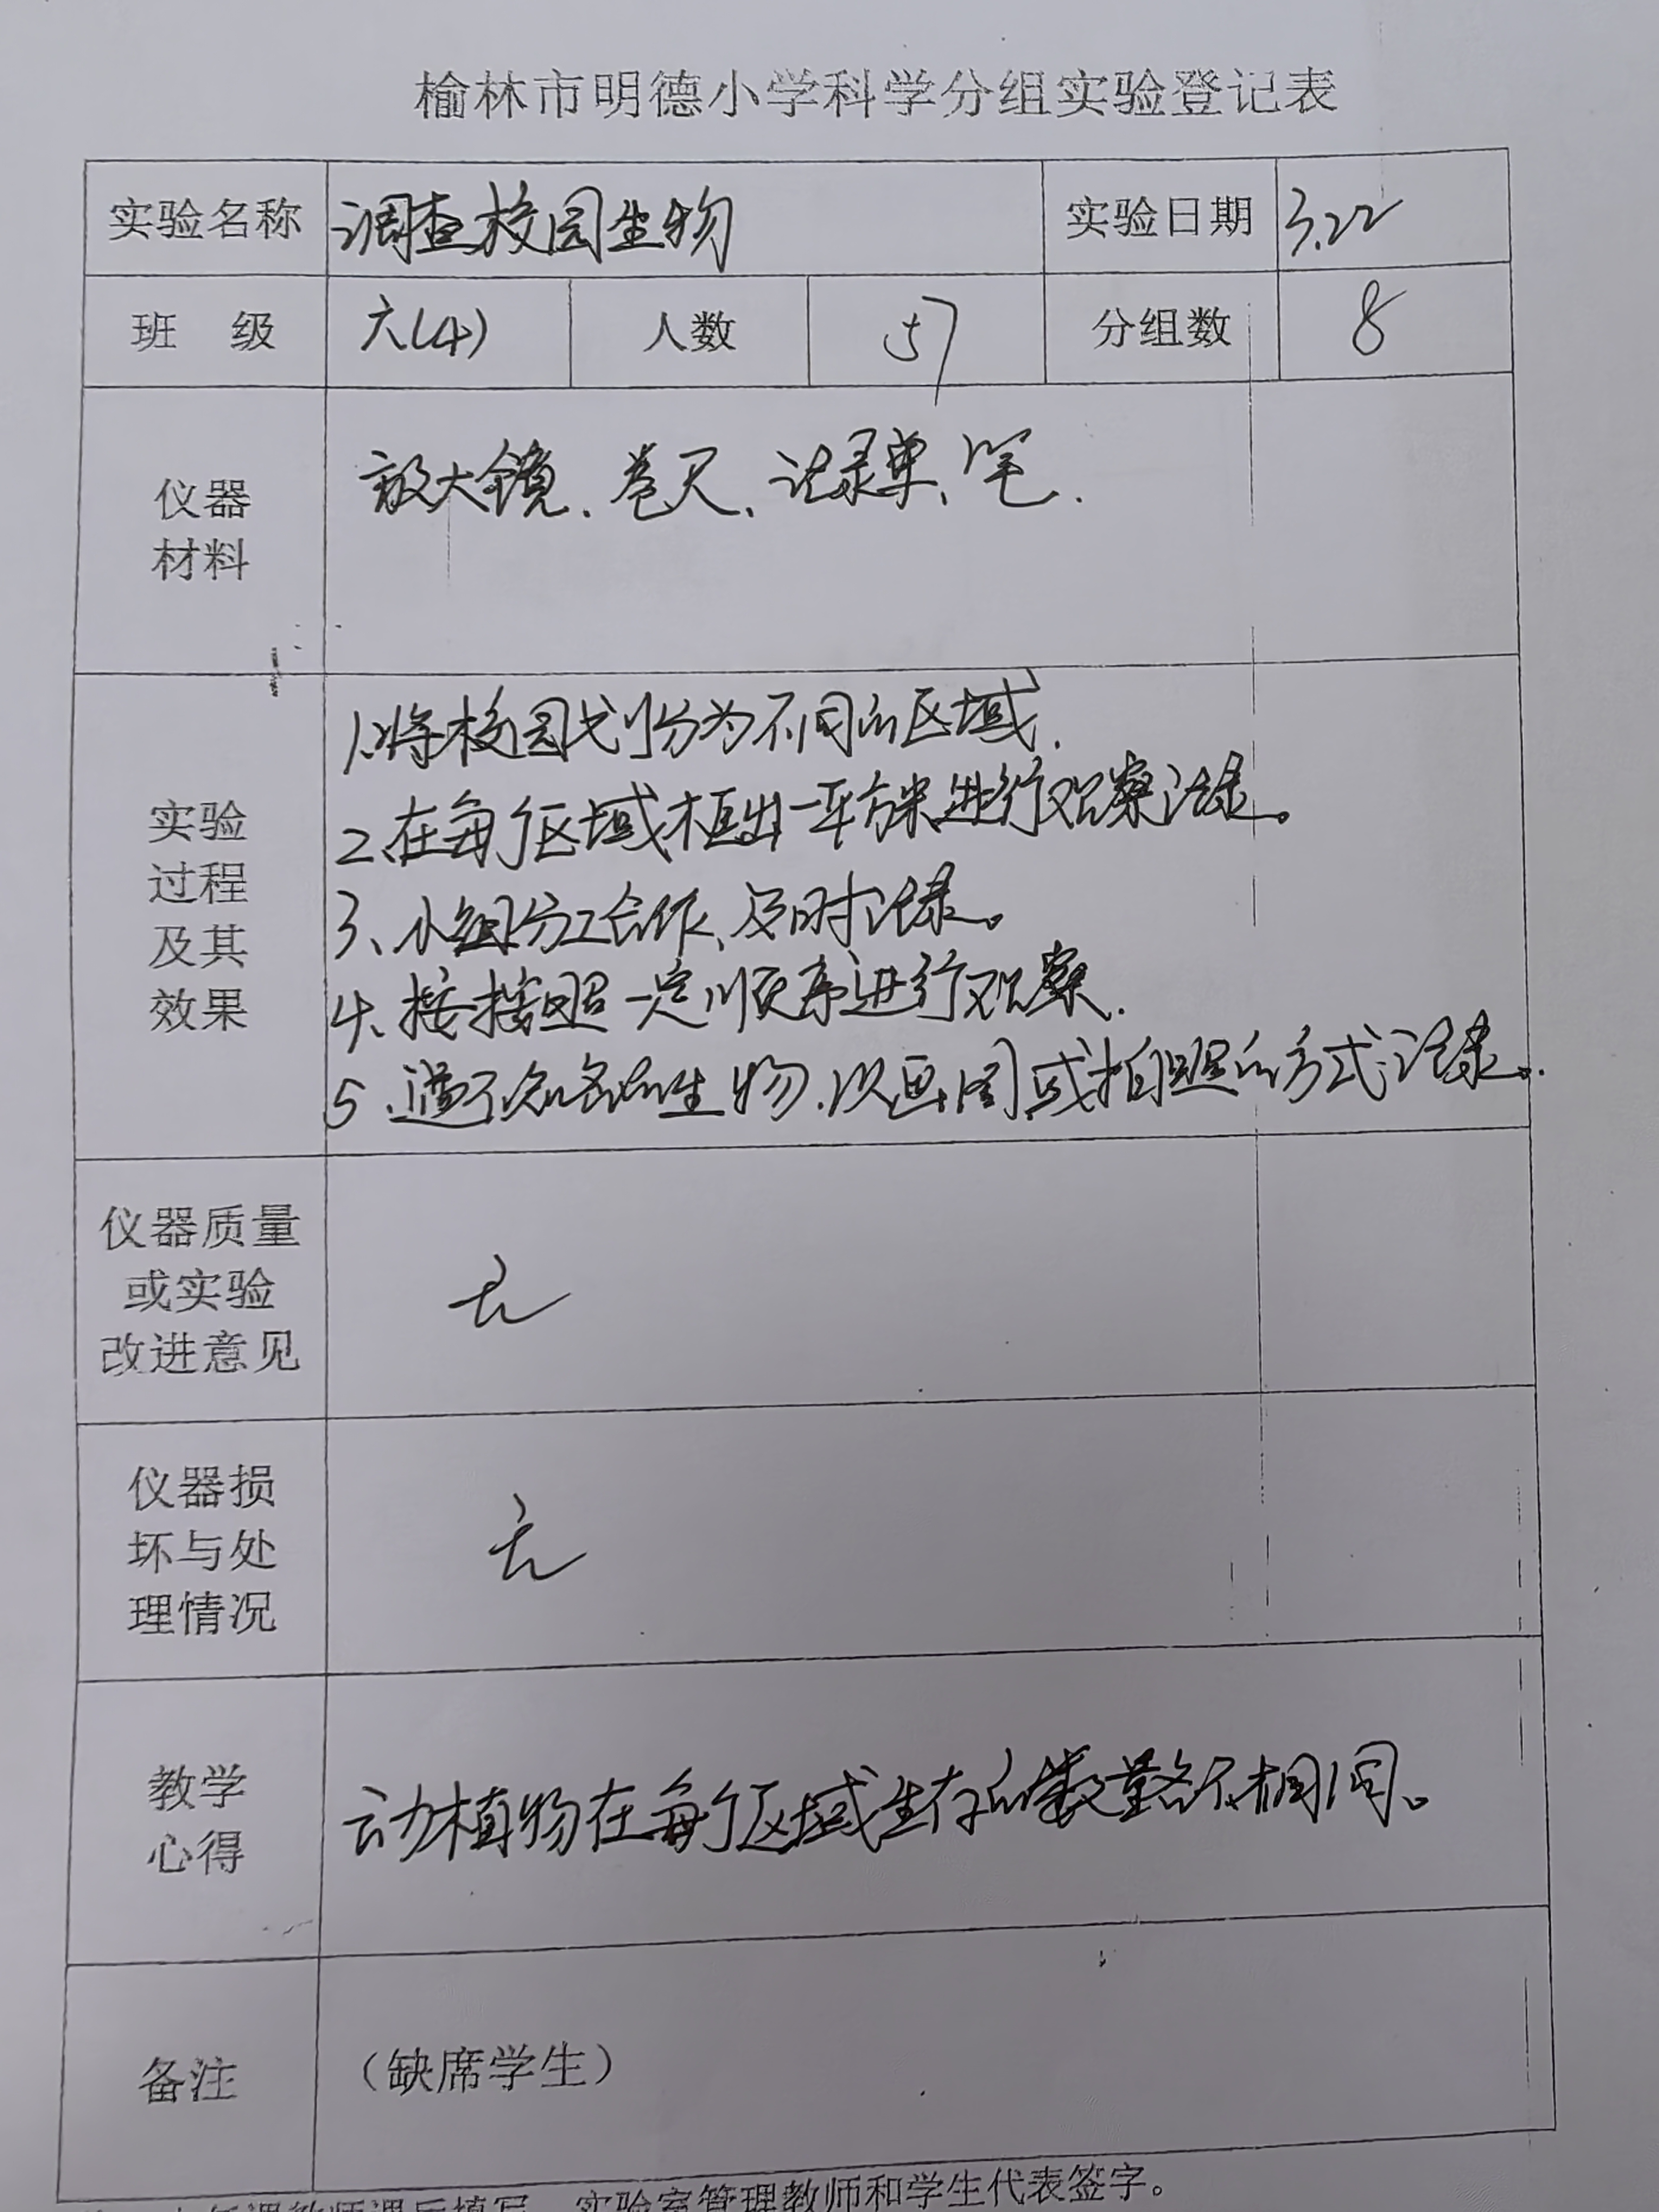 榆林市明德小学科学分组实验登记表
实验名称 调查校园生物 实验日期 3.22
班 级 六(4) 人数 57 分组数 8
仪器
材料
放大镜、卷尺、记录单、笔.
实验
过程
及其
效果
1.将校园划分为不同的区域.
2、在每个区域框出一平方米进行观察记录。
3、小组分工合作、及时记录。
4、按按照一定顺序进行观察.
5、遇不知名的生物、以画图或拍照的方式记录。
仪器质量
或实验
改进意见
无
仪器损
坏与处
理情况
无
教学
心得
动植物在每个区域生存的数量各不相同。
备注
（缺席学生）
任课教师课后填写，实验室管理教师和学生代表签字。